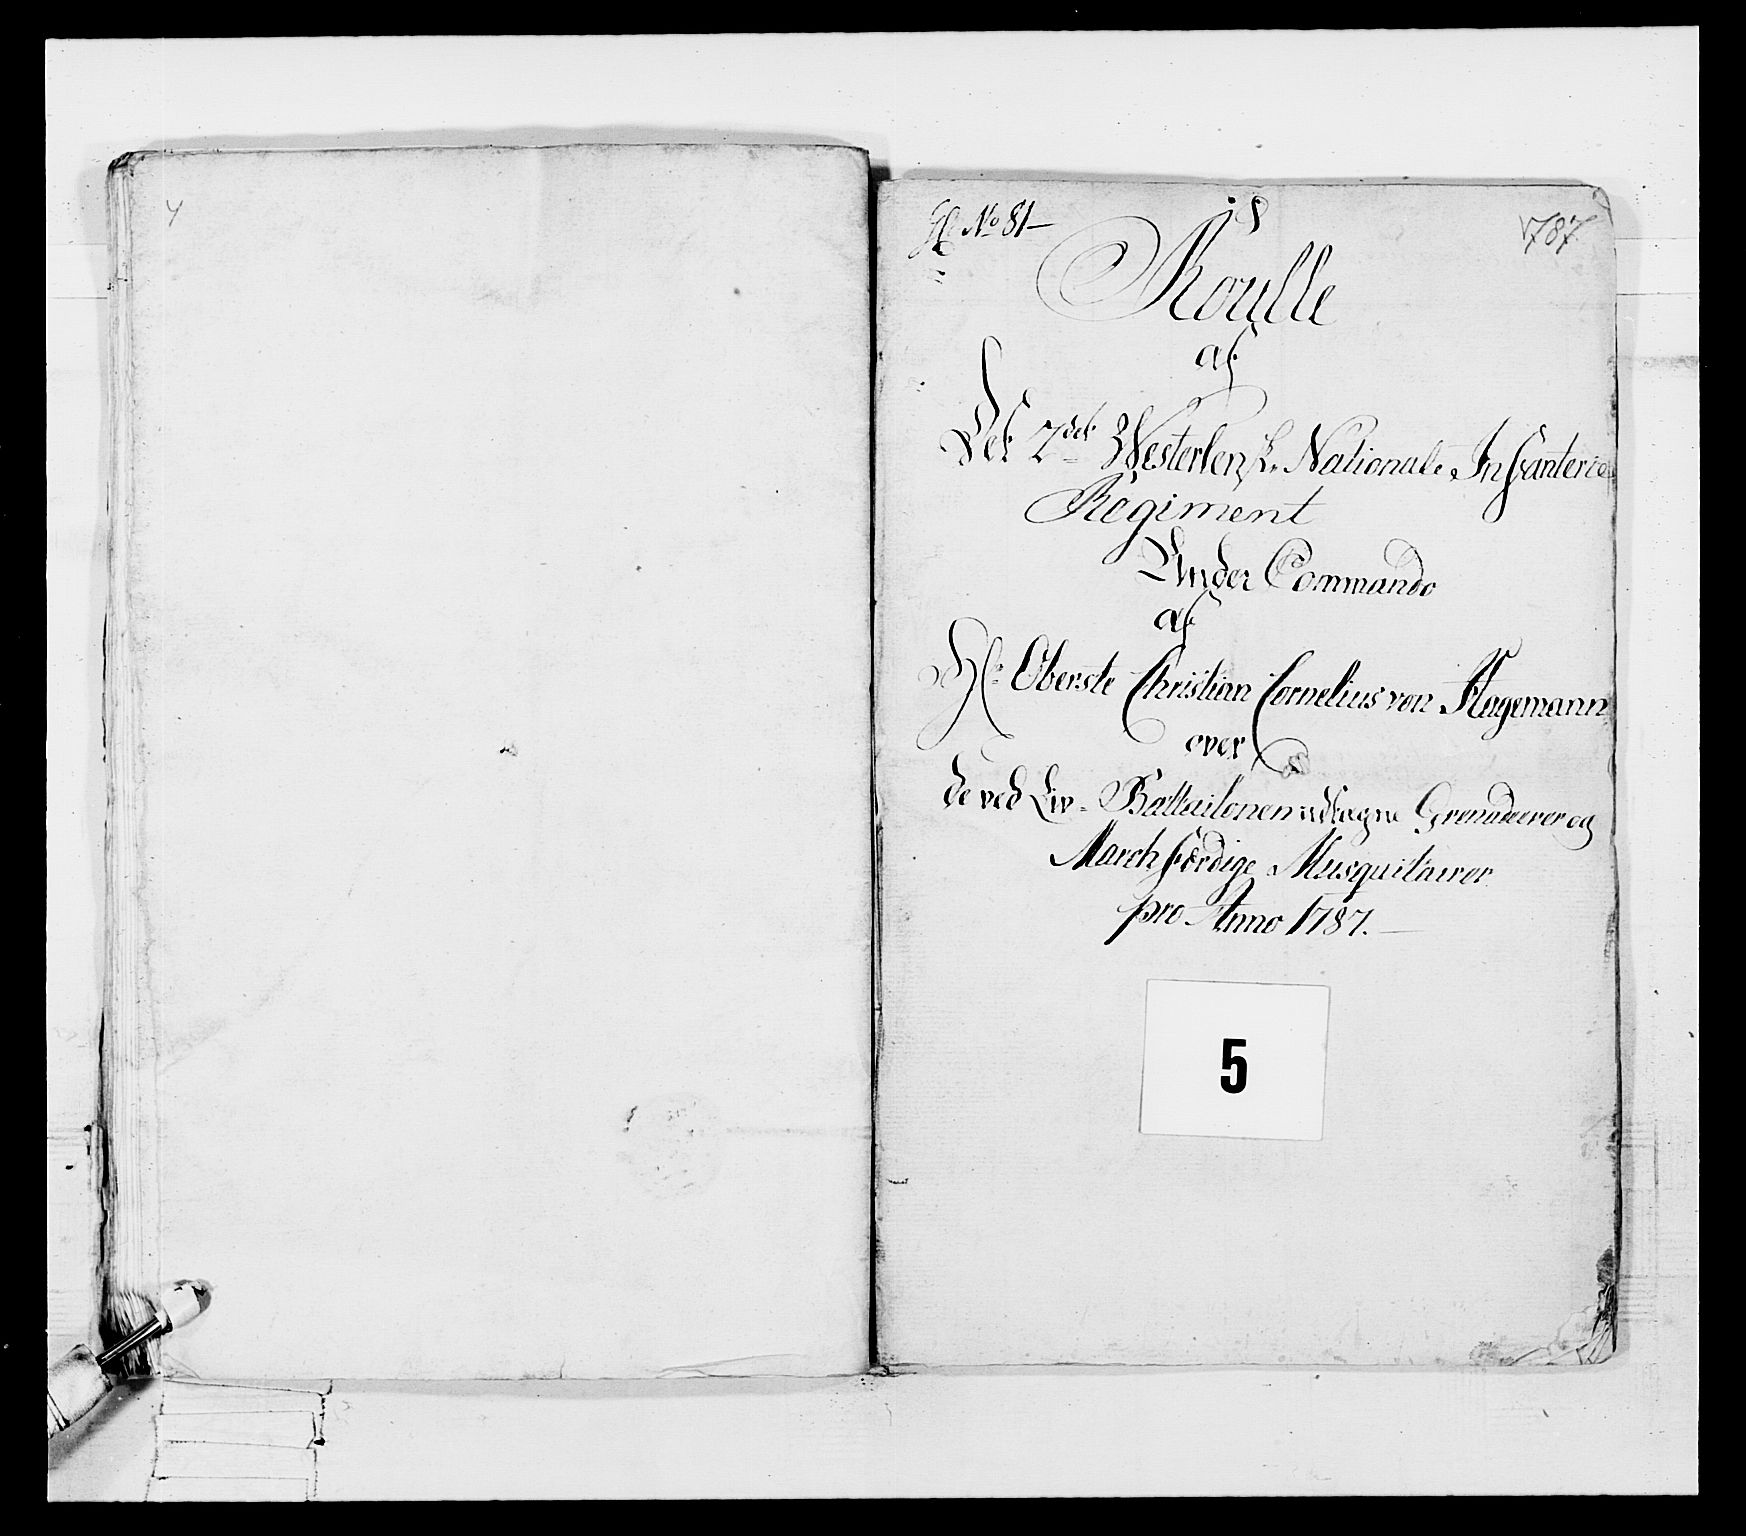 4
No 81
1787
Roulle
af
Det 2det Westerlensk. Nationale Infanterie
Regiment
Under Commando
af
Hr. Oberste Christian Cornelius von Hagemann
over
de ved Liv- Battailonen udtagne Grenadeerer og
March færdige Musquitairer
pro Anno 1787.
5